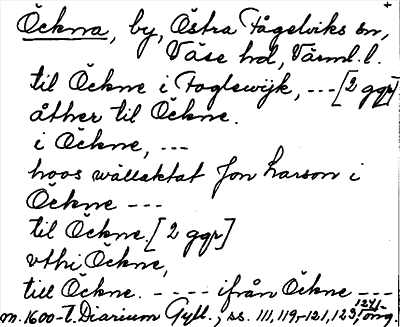 Öckna, by, Östra Fågelviks sn,
Väse hd, Värml. l.
till Öckne i Foglewijk, --- [2 ggr]
åther til Öckne.
i Öckne, ---
hoos wällaktat Jon Larson i
Öckne ---
til Öckne [2 ggr]
vthi Öckne,
till Öckne. - - - - ifrån Öckne ---
m. 1600-t. Diarium Gyll., ss. 111, 119-121, 123, 124, omg.